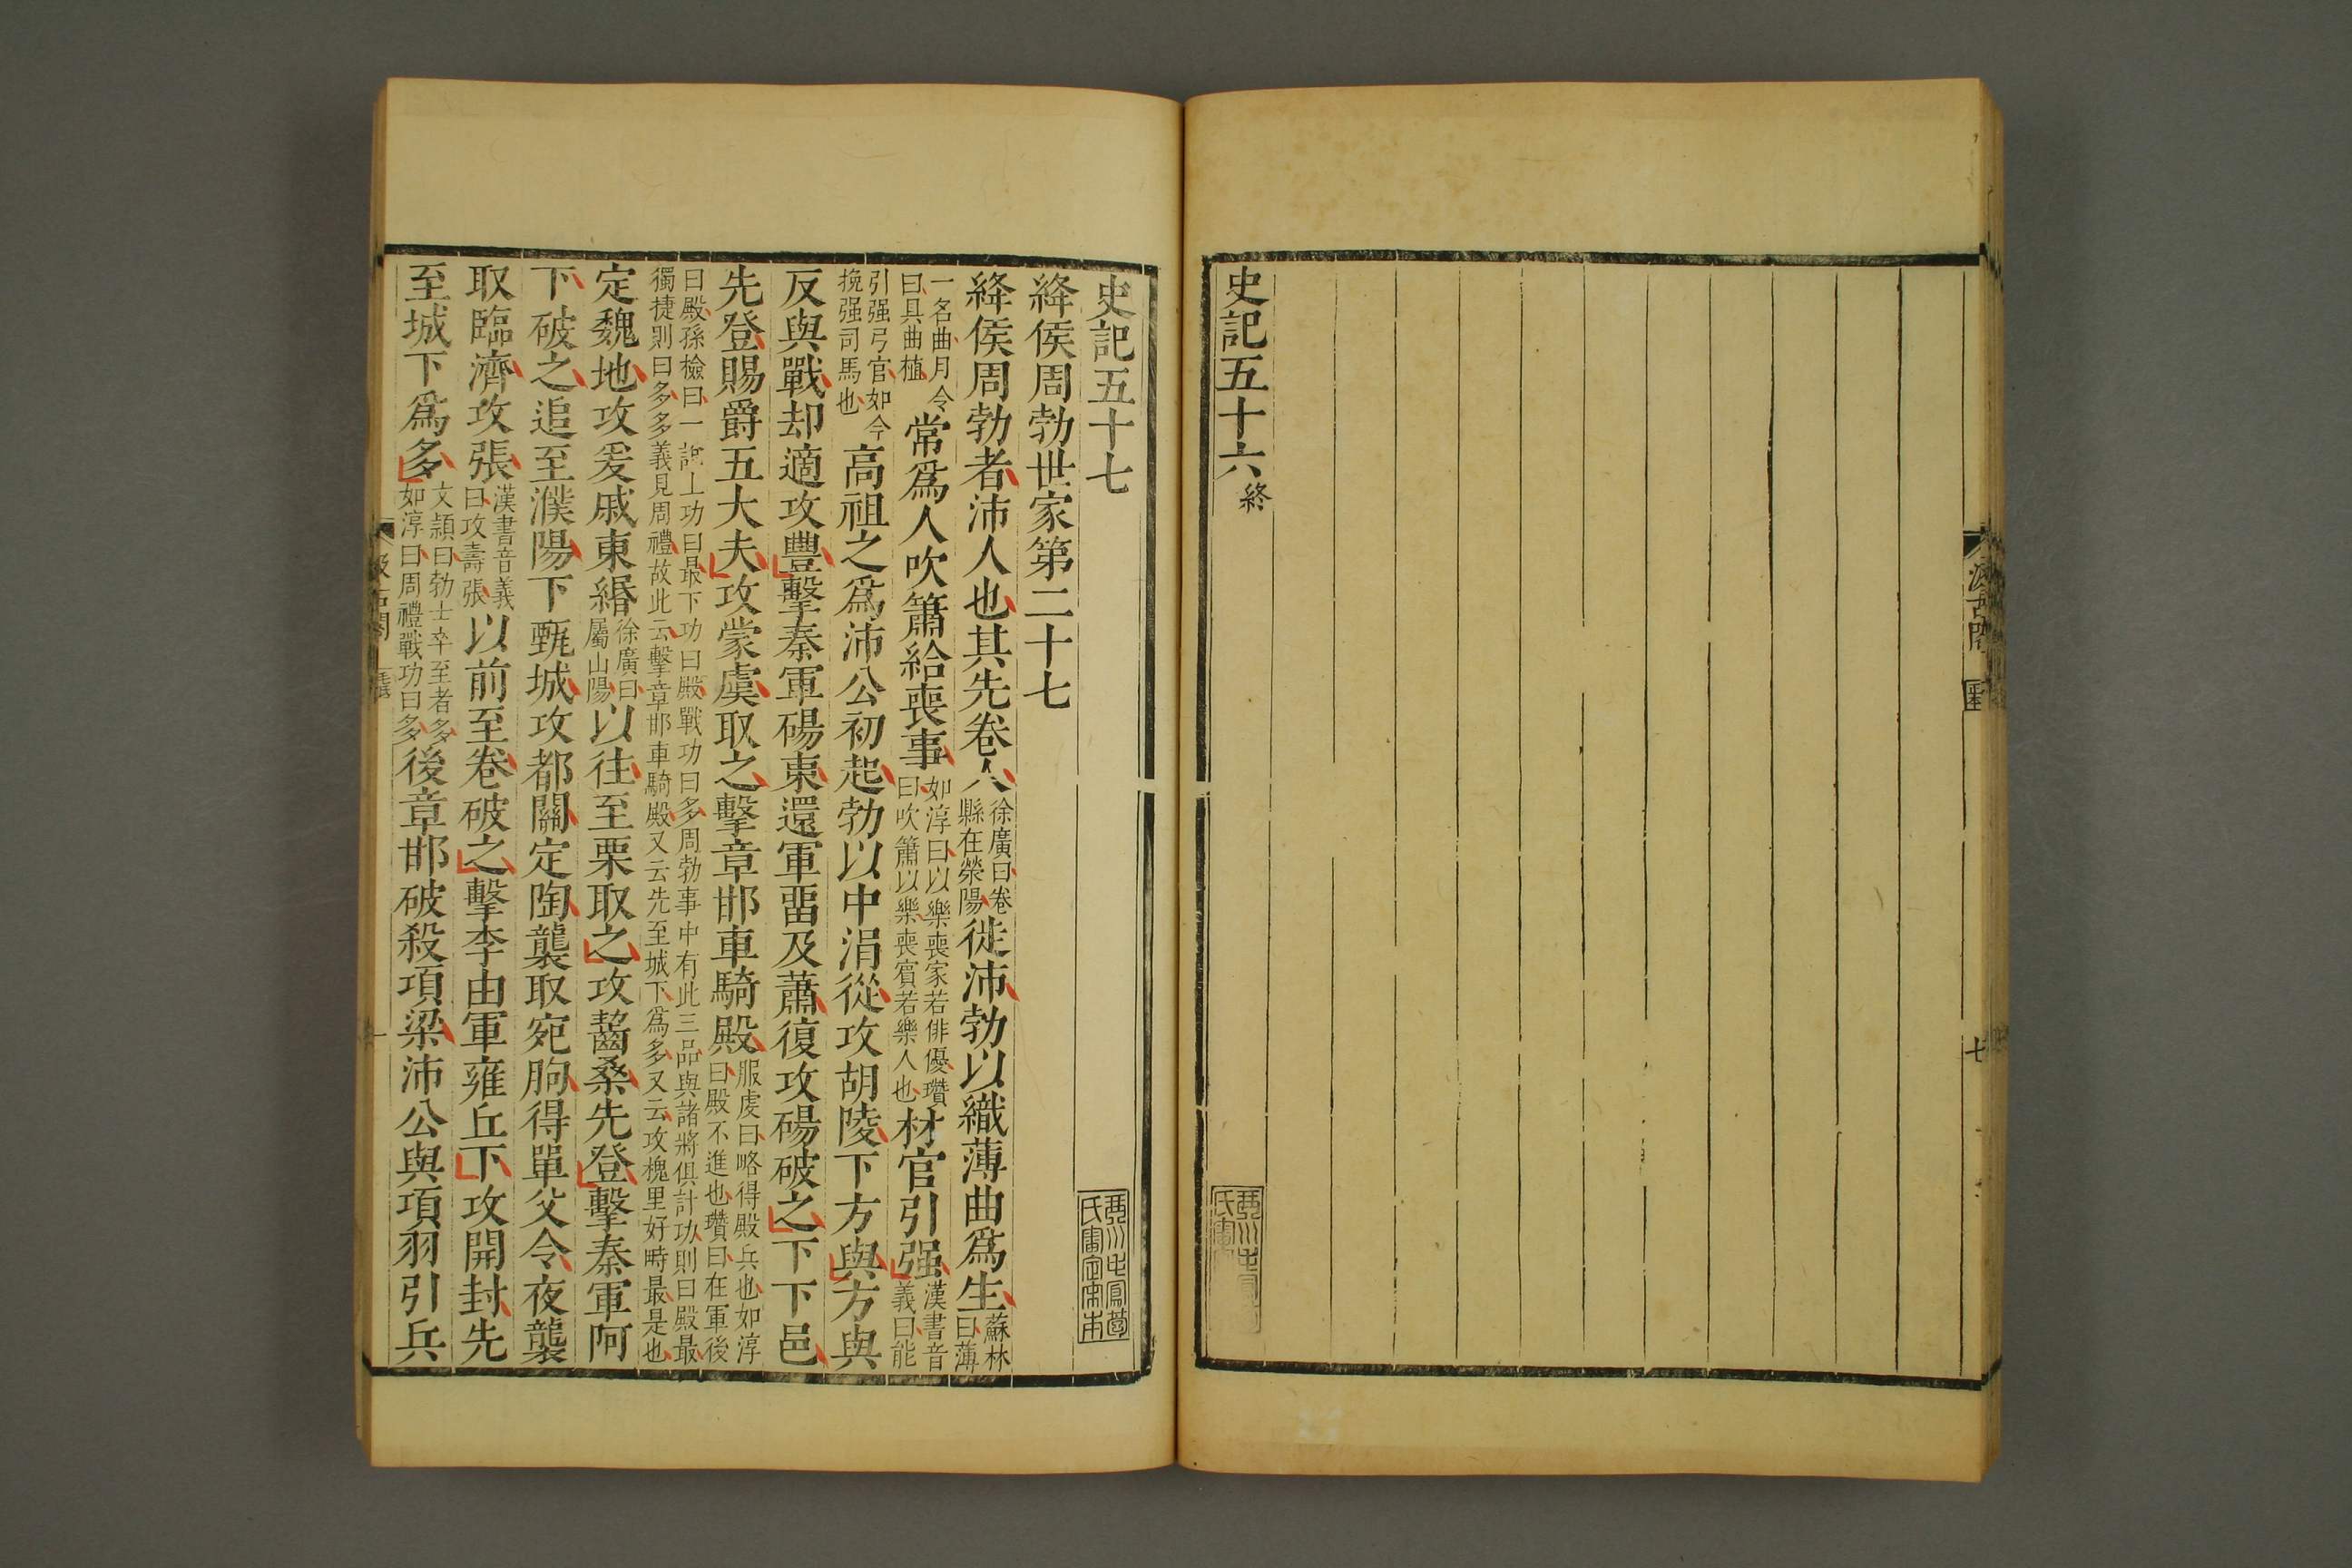 汲古閣
史記五十六終
琴川毛鳳苞氏審定宋本
史記五十七
琴川毛鳳苞氏審定宋本
絳侯周勃世家第二十七
絳侯周勃者沛人也其先卷人徐廣曰卷縣在滎陽徙沛勃以織薄曲爲生蘇林曰薄
一名曲月令曰具曲植常爲人吹簫給喪事如淳曰以樂喪家若俳優瓚曰吹簫以樂喪賓若樂人也材官引强漢書音義曰能
引强弓官如今挽强司馬也高祖之爲沛公初起勃以中涓從攻胡陵下方與方與
反與戰却適攻豐擊秦軍碭東還軍畱及蕭復攻碭破之下下邑
先登賜爵五大夫攻蒙虞取之擊章邯車騎殿服虔曰略得殿兵也如淳曰殿不進也瓚曰在軍後
曰殿孫檢曰一說上功曰最下功曰殿戰功曰多周勃事中有此三品與諸將俱計功則曰殿最
獨捷則曰多多義見周禮故此云擊章邯車騎殿又云先至城下爲多又云攻槐里好畤最是也
定魏地攻爰戚東緡徐廣曰屬山陽以往至栗取之攻齧桑先登擊秦軍阿
下破之追至濮陽下甄城攻都關定陶襲取宛朐得單父令夜襲
取臨濟攻張漢書音義曰攻壽張以前至卷破之擊李由軍雍丘下攻開封先
至城下爲多文頴曰勃士卒至者多如淳曰周禮戰功曰多後章邯破殺項梁沛公與項羽引兵